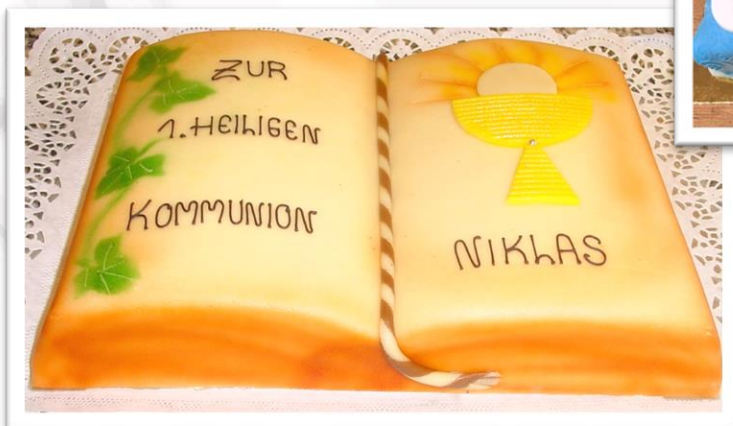 ZUR
1. HEILIGEN
KOMMUNION
NIKLAS